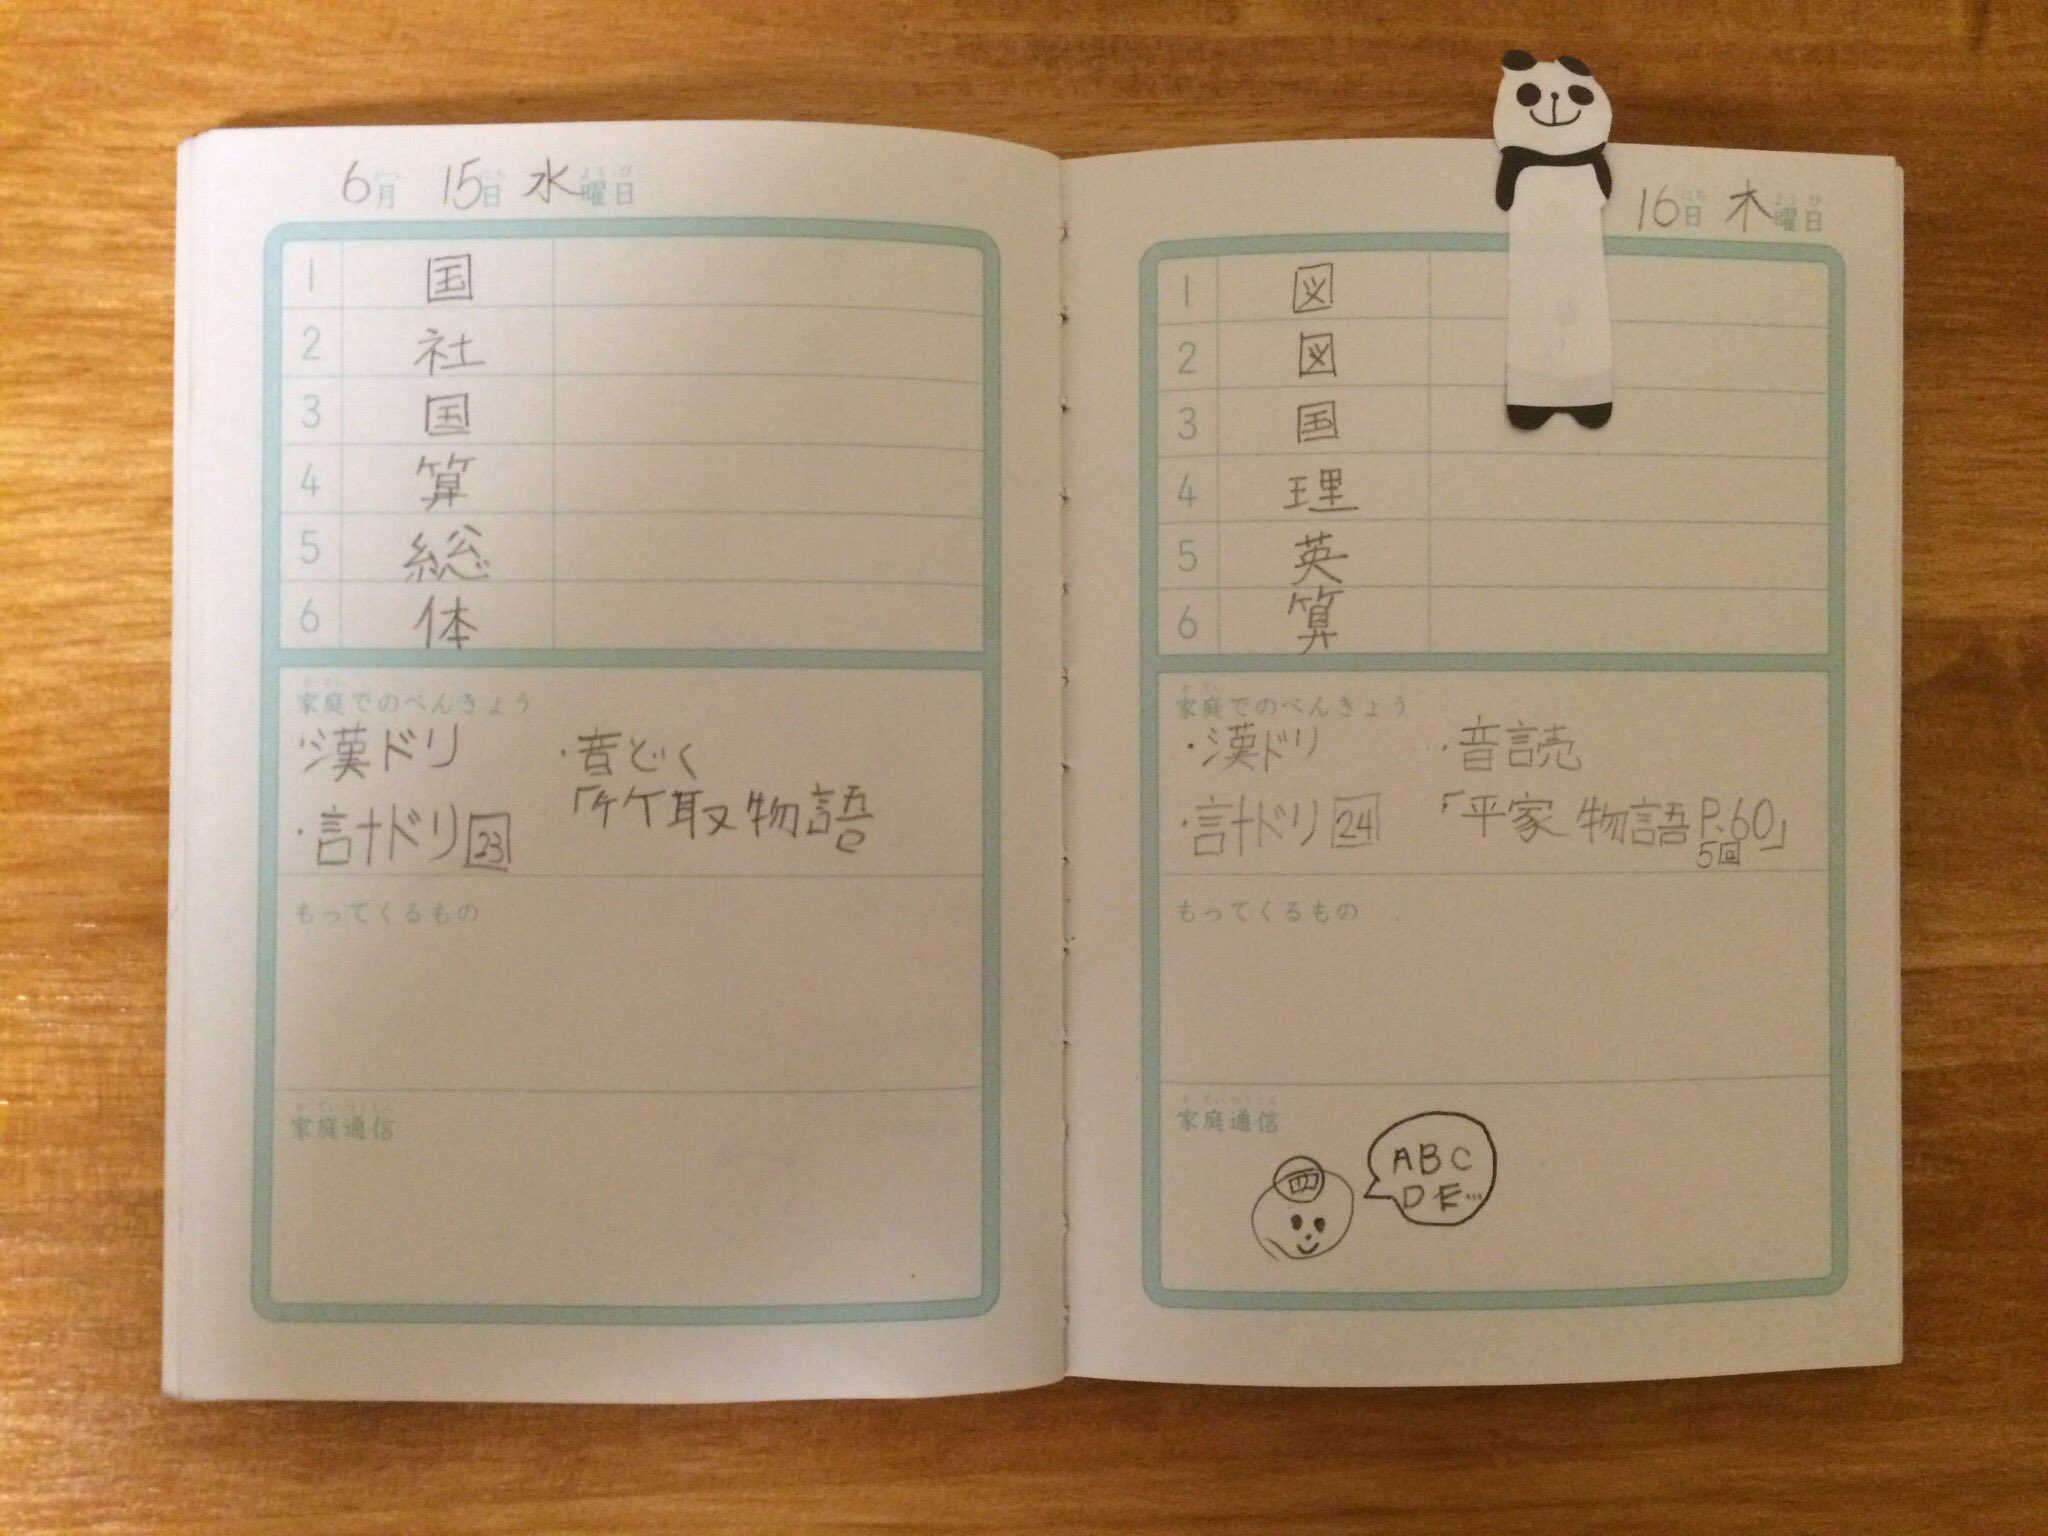 6月 15日 水曜日
1 国
2 社
3 国
4 算
5 総
6 体
家庭でのべんきょう
・漢ドリ ・音どく
「竹取物語」
・計ドリ 23
もってくるもの
家庭通信
16日 木曜日
1 図
2 図
3 国
4 理
5 英
6 算
家庭でのべんきょう
・漢ドリ ・音読
・計ドリ 24 「平家物語P.60」
5回
もってくるもの
家庭通信
ABC
DE…